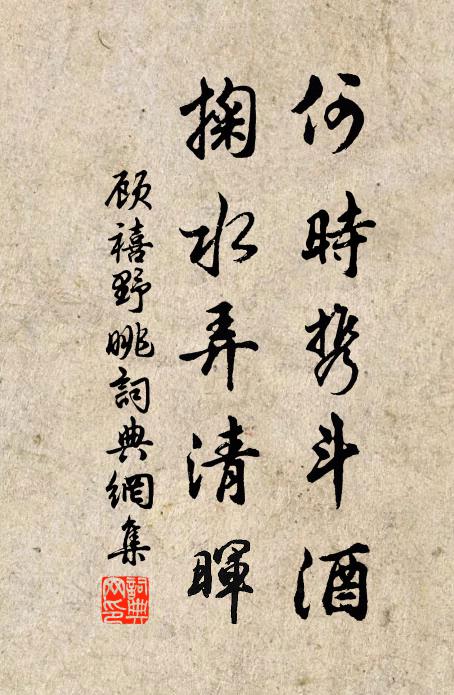 何時携斗酒
掬水弄清暉
顾禧野眺詞典網集
詞典網印